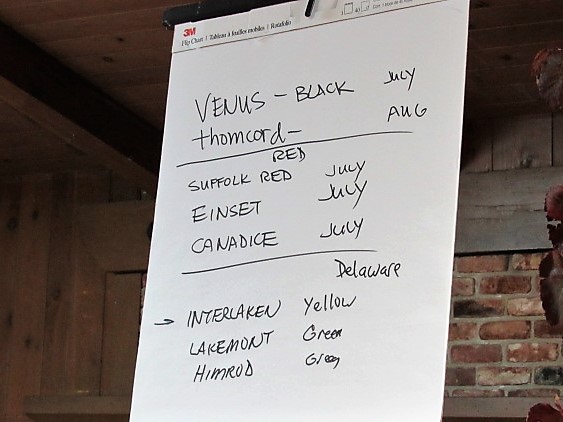 3M
Flip Chart | Tableau à feuilles mobiles | Rotafolio
VENUS - BLACK JULY
thomcord- AUG
RED
SUFFOLK RED JULY
EINSET JULY
CANADICE JULY
Delaware
→ INTERLAKEN Yellow
LAKEMONT Green
HIMROD Green